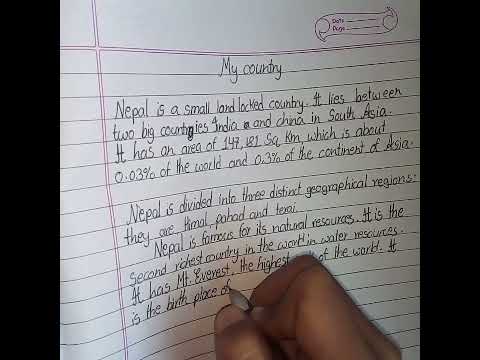 Date
Page
My country
Nepal is a small landlocked country. It lies between
two big countries India and china in South Asia.
It has an area of 147,181 Sq. Km which is about
0.03% of the world and 0.3% of the continent of Asia.
Nepal is divided into three distinct geographical regions:
they are Himal, pahad and terai.
Nepal is famous for its natural resources. It is the
Second richest country in the world in water resources.
It has Mt. Everest, the highest of the world. It
is the birth place of